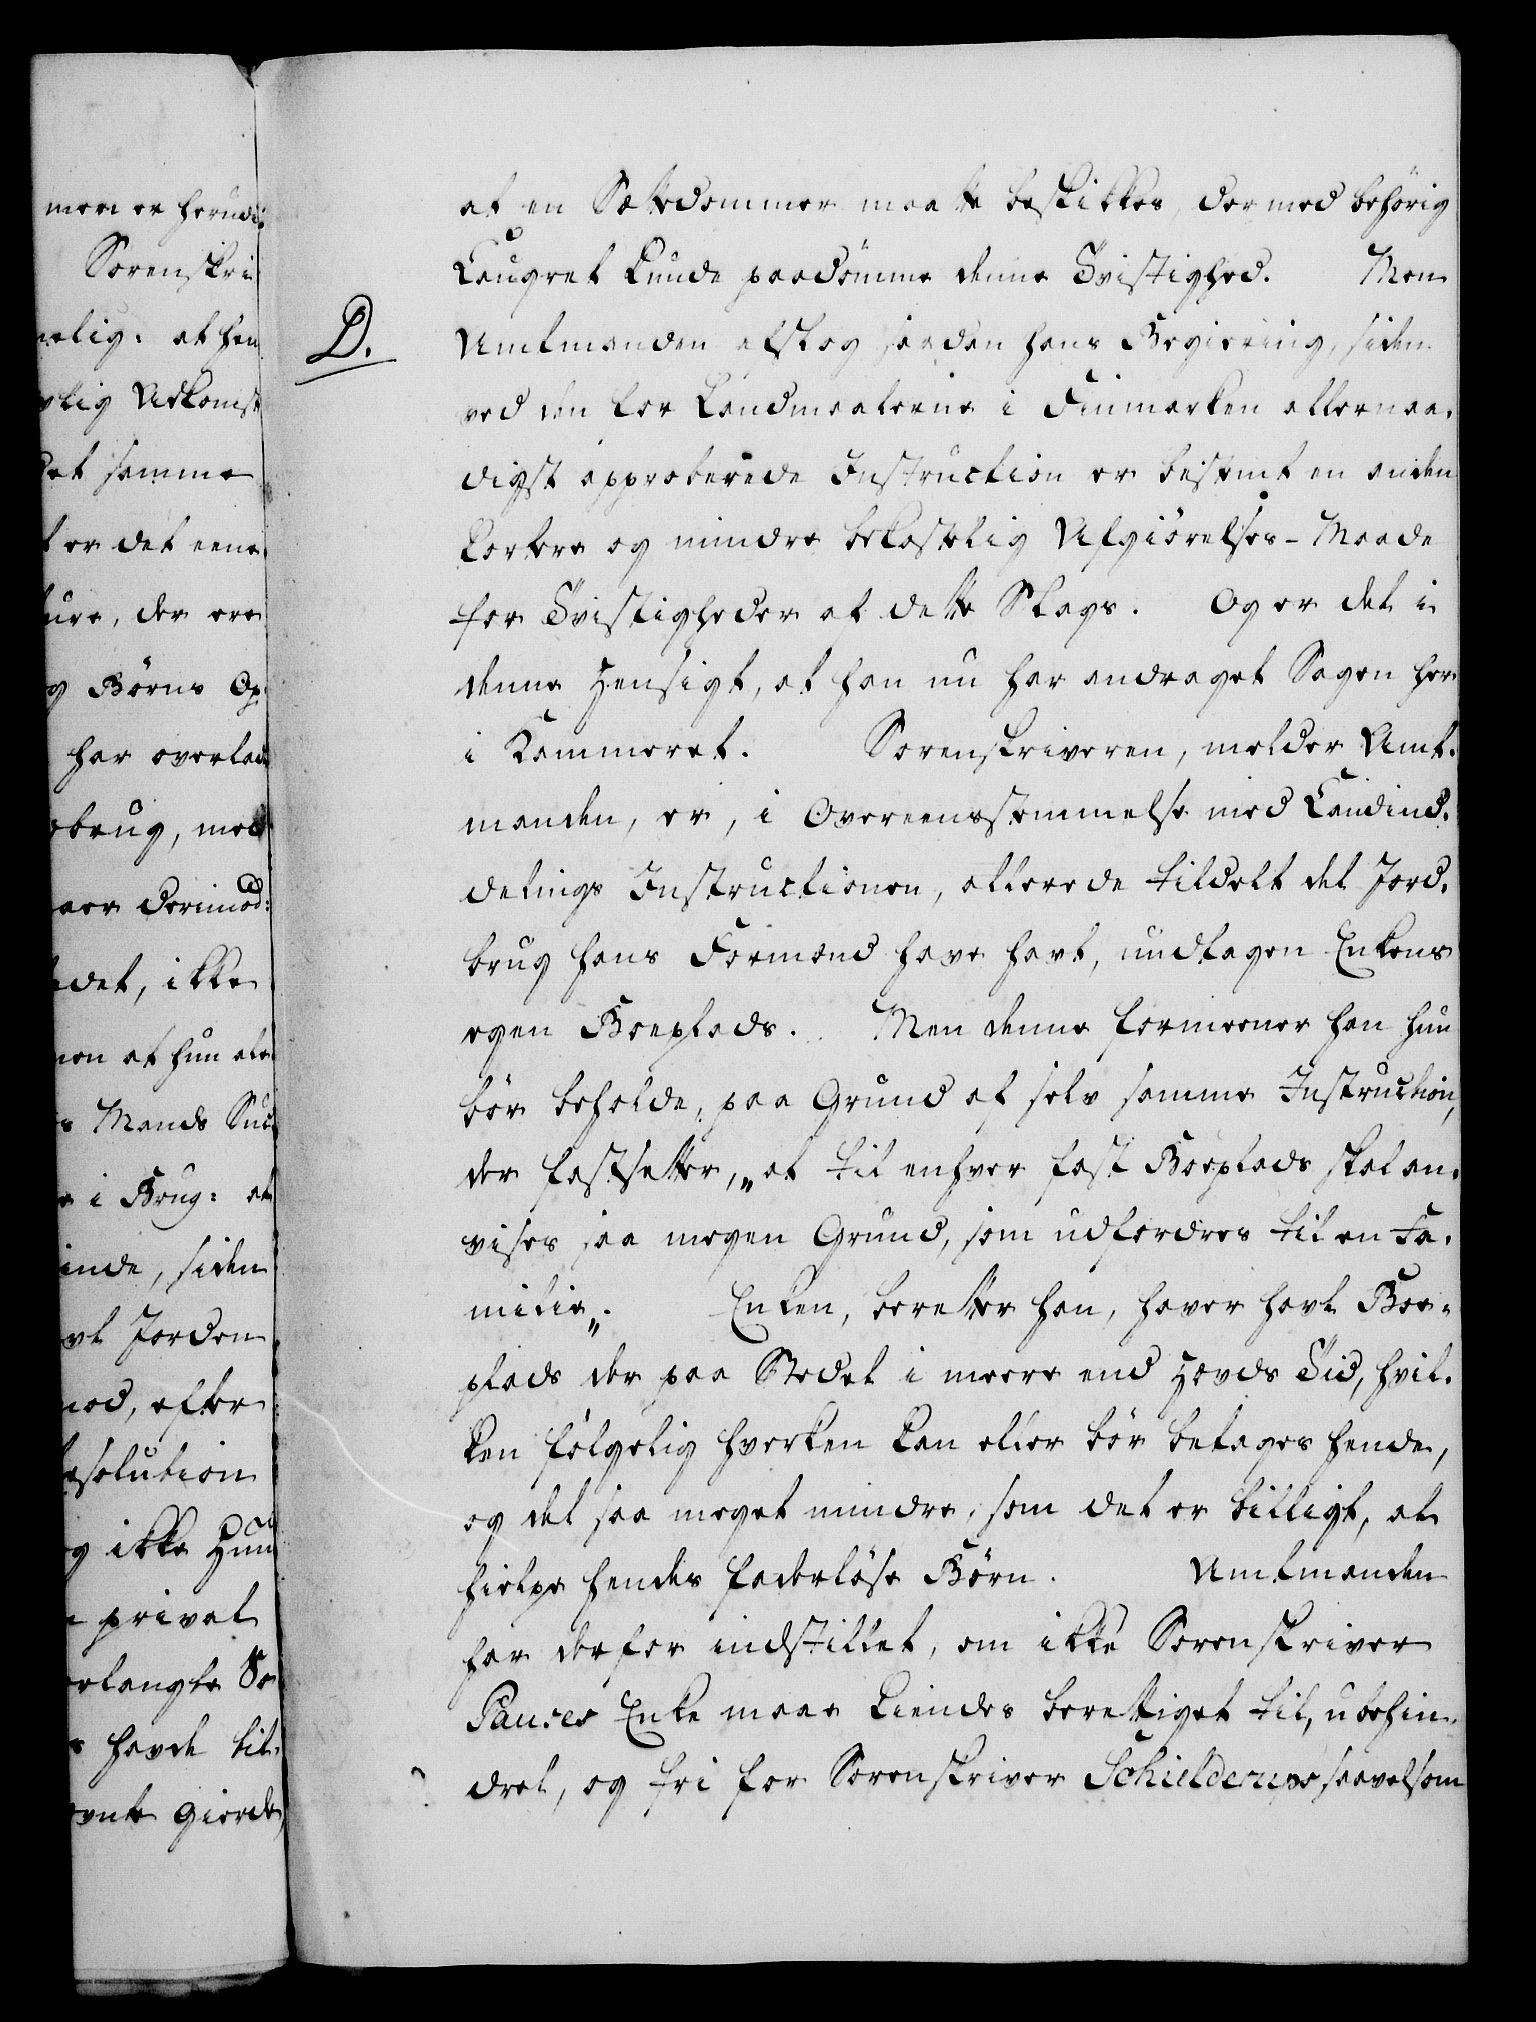 men er herudi
Sorenskri
melig: at hen
Udkomst
det samme
er det eene
ture, der ere
og Börns Op
har overlad
brug, mod
aar derimod
det, ikke
men at hun
Mands Suc
i Brug: at
inde, siden
Jorden
mod, efter
Resolution
og ikke Hun
privat
rlangte So
havde til
Giærde,
at en Sættedommer maatte beskikkes, der med behörig
Laugret kunde paadömme denne Tvistighed. Men
D.
Amtmanden afslog saadan hans Begiering, siden
ved den for Landmaalerne i Finmarken allernaa-
digst approberede Instruction er bestemt en anden
kortere og mindre bekostelig Afgiörelses-Maade
for Tvistigheder af dette Slags. Og er det i
denne Hensigt, at han nu har andraget Sagen her
i Kammeret. Sorenskriveren, melder Amt-
manden, er, i Overeensstemmelse med Landind-
delings Instructionen, allerede tildelt det Jord-
brug hans Formænd have havt, undtagen Enkens
egen Boeplads. Men denne formeener han hun
bör beholde, paa Grund af selv samme Instruction,
der fastsetter, „at til enhver fast Boeplads skal an-
vises saa megen Grund, som udfordres til en Fa-
milie„. Enken, beretter han, haver havt Boe-
plads der paa Stedet i meere end Hævds Tid, hvil-
ken fölgelig hverken kan eller bör betages hende,
og det saa meget mindre, som det er billigt, at
hielpe hendes faderlöse Börn. Amtmanden
har derfor indstillet, om ikke Sorenskriver
Pauses Enke maae kiendes berettiget til, ubehin-
dret, og fri for Sorenskriver Schielderups saavelsom